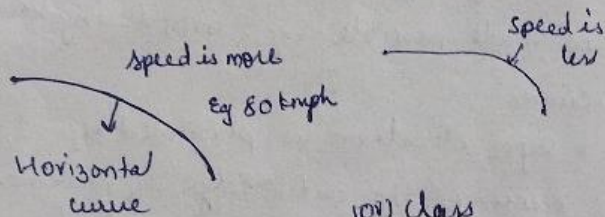 speed is more
Eg 80 kmph
Horizontal
curve
speed is
less
class